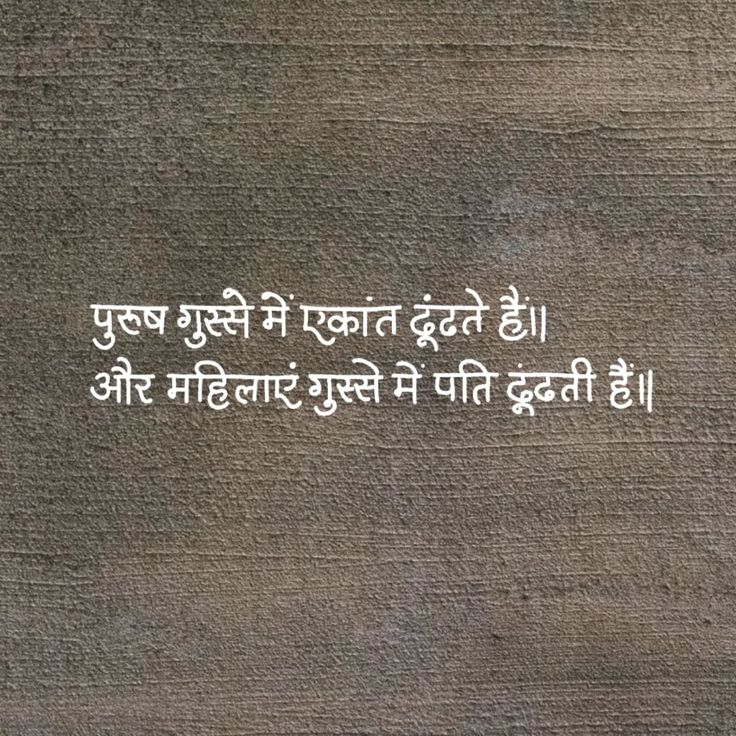 पुरूष गुस्से में एकांत ढूंढते हैं॥
और महिलाएं गुस्से में पति ढूंढती हैं॥